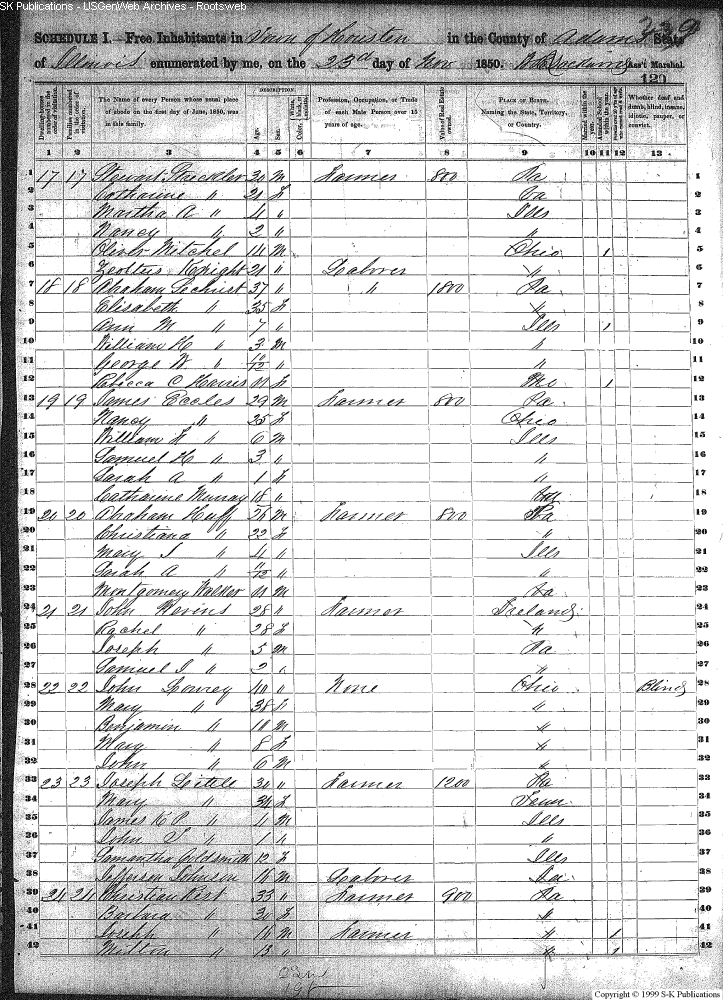 SK Publications - USGenWeb Archives - Rootsweb
339
SCHEDULE I.—Free Inhabitants in Town of Houston in the County of Adams State
of Illinois enumerated by me, on the 23rd day of Nov 1850. Ass't Marshal.
120
Dwelling-houses numbered in the order of visitation.
Families numbered in the order of visitation.
The Name of every Person whose usual place of abode on the first day of June, 1850, was in this family.
DESCRIPTION.
Age.
Sex.
Color, White, black, or mulatto.
Profession, Occupation, or Trade of each Male Person over 15 years of age.
Value of Real Estate owned.
PLACE OF BIRTH. Naming the State, Territory, or Country.
Married within the year.
Attended School within the year.
Whether deaf and dumb, blind, insane, idiotic, pauper, or convict.
1 2 3 4 5 6 7 8 9 10 11 12 13
1 17 17 Stewart Strickler 30 M Farmer 800 Pa 1
2 Catharine " 21 F Pa 2
3 Martha A " 4 " Ills 3
4 Nancy " 2 " " 4
5 Oliver Mitchel 14 M Ohio 1 5
6 Knight 21 " Laborer " 6
7 18 18 Abraham Sechrist 37 " " 1800 Pa 7
8 Elisabeth " 35 F " 8
9 Ann M " 7 " Ills 1 9
10 William H " 3 M " 10
11 George W " 10/12 " " 11
12 Rebicca C Harris 11 F Mo 1 12
13 19 19 James Eccles 29 M Farmer 800 Pa 13
14 Nancy " 25 F Ohio 14
15 William F " 6 M Ills 15
16 Samuel H " 3 " " 16
17 Sarah A " 1 F " 17
18 Catharine Murray 18 " 18
19 20 20 Abraham Huff 26 M Farmer 800 Pa 19
20 Christiana " 22 F " 20
21 Mary J " 4 " Ills 21
22 Sarah A " 11/12 " " 22
23 Montgomery Walker 11 M Pa 23
24 21 21 John Nevins 28 " Farmer Ireland 24
25 Rachel " 28 F " 25
26 Joseph " 5 M Pa 26
27 Samuel J " 2 " " 27
28 22 22 John Lowrey 40 " None Ohio Blind 28
29 Mary " 38 F " 29
30 Benjamin " 10 M " 30
31 Mary " 8 F " 31
32 John " 6 M " 32
33 23 23 Joseph Little 30 " Farmer 1200 Pa 33
34 Mary " 34 F Tenn 34
35 James K P " 4 M Ills 35
36 John T " 1 " " 36
37 Samantha Goldsmith 12 F Ills 37
38 Jefferson Johnson 16 M Laborer 38
39 24 24 Christian Rist 33 " Farmer 900 Pa 39
40 Barbara " 30 F " 40
41 Joseph " 16 M Farmer " 1 41
42 Milton " 13 " " 1 42
Copyright © 1999 S-K Publications